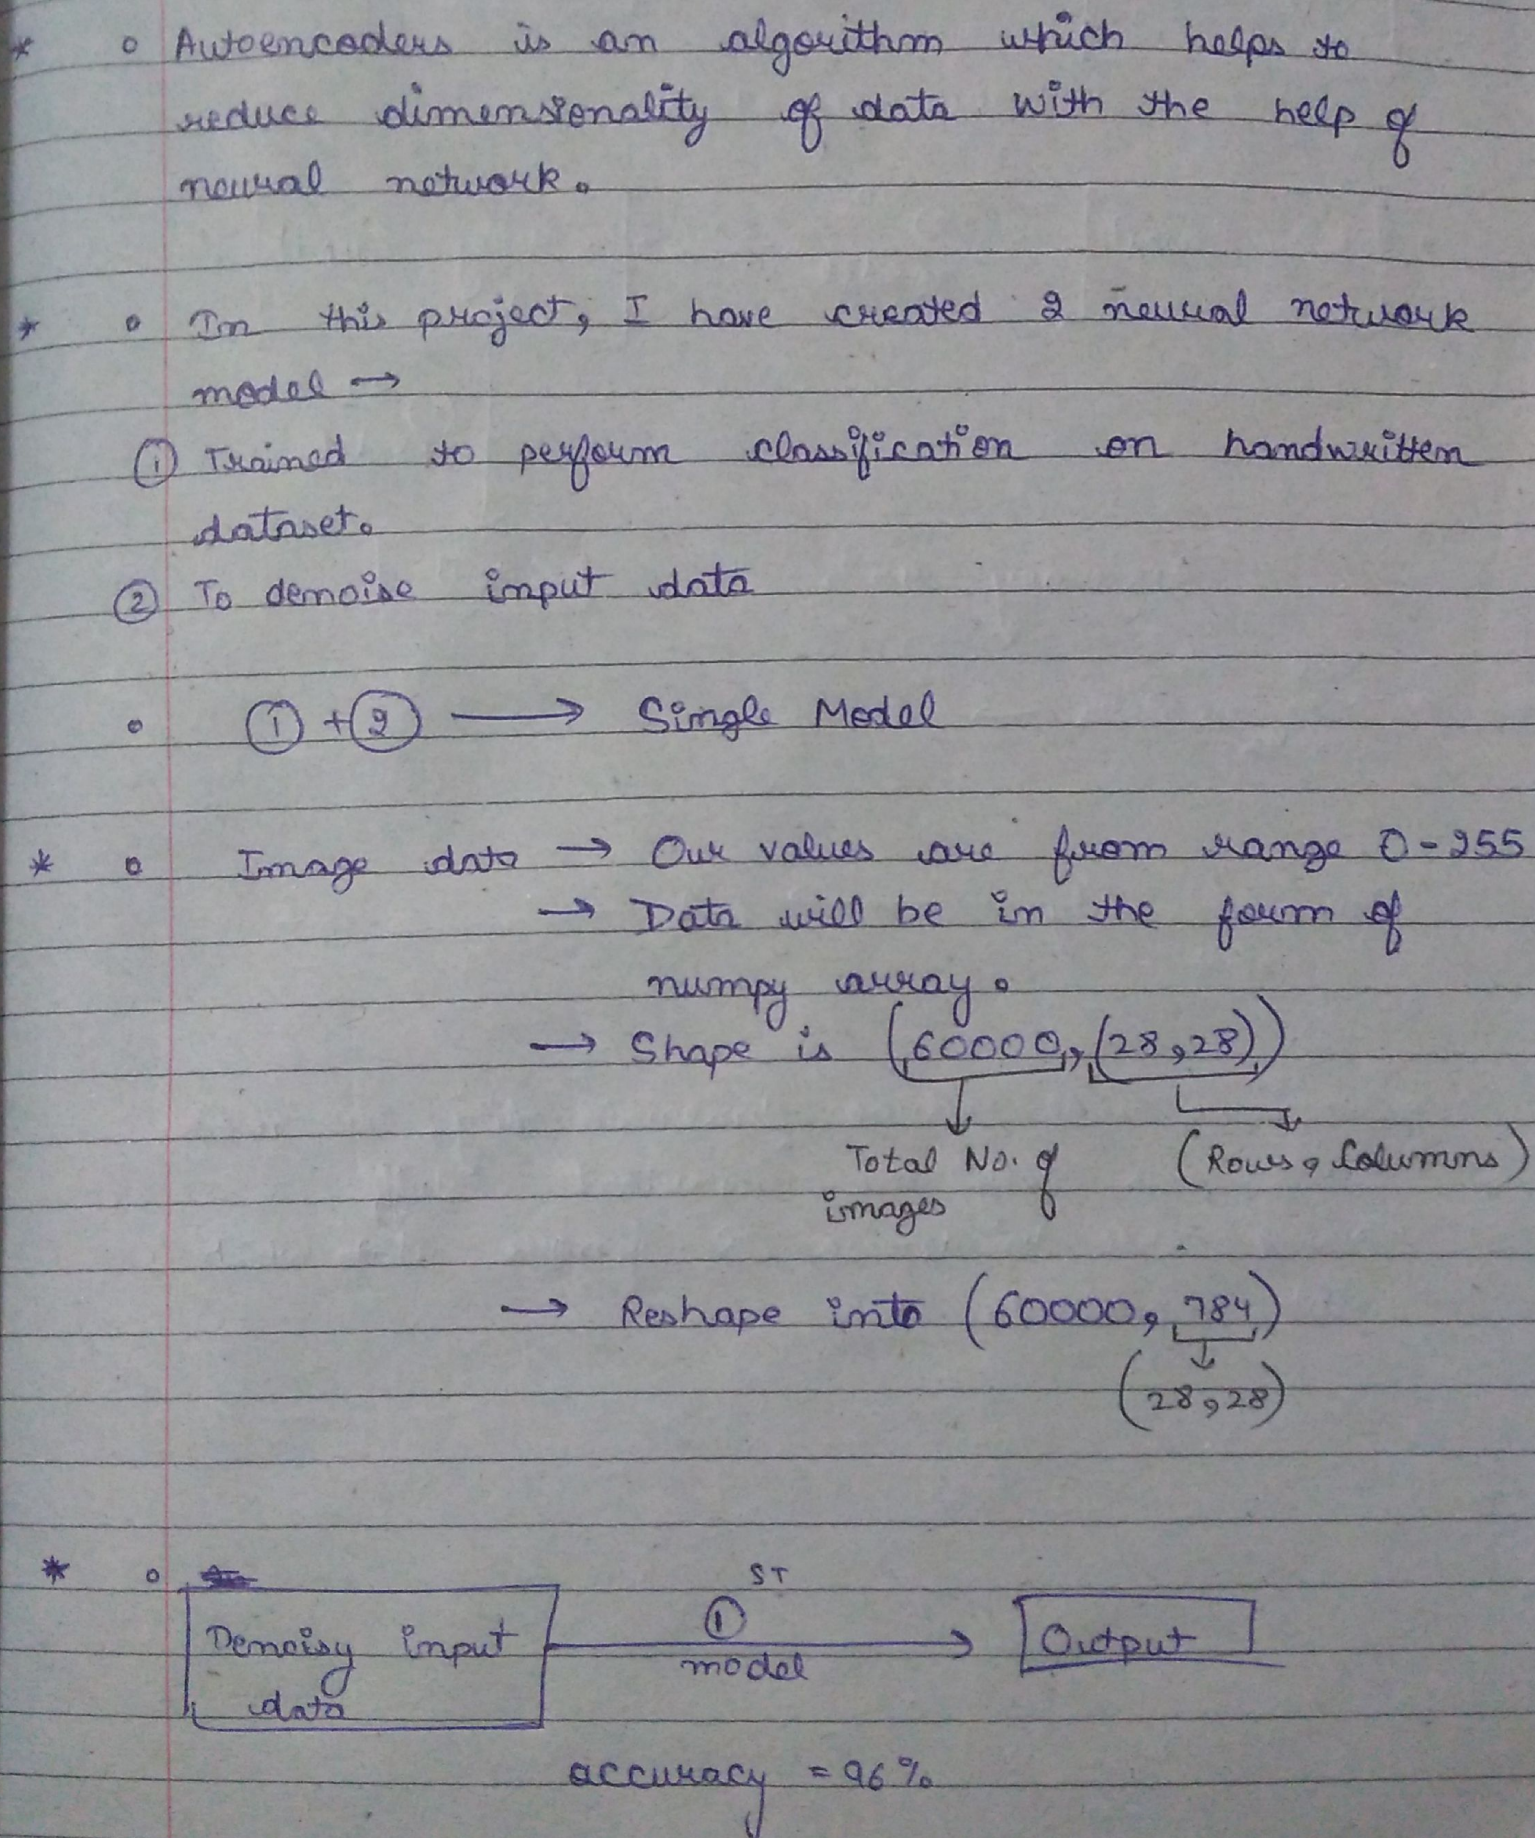 * o Autoencoders is an algorithm which helps to
reduce dimensionality of data with the help of
neural network.
* o In this project, I have created 2 neural network
model →
① Trained to perform classification on handwritten
dataset.
② To denoise input data
o ① + ② → Single Model
* o Image data → Our values are from range 0-255
→ Data will be in the form of
numpy array.
→ Shape is (60000, (28,28))
Total No. of (Rows, Columns)
images
→ Reshape into (60000, 784)
(28,28)
* o
ST
Denoisy input ① Output
model
data
accuracy = 96%